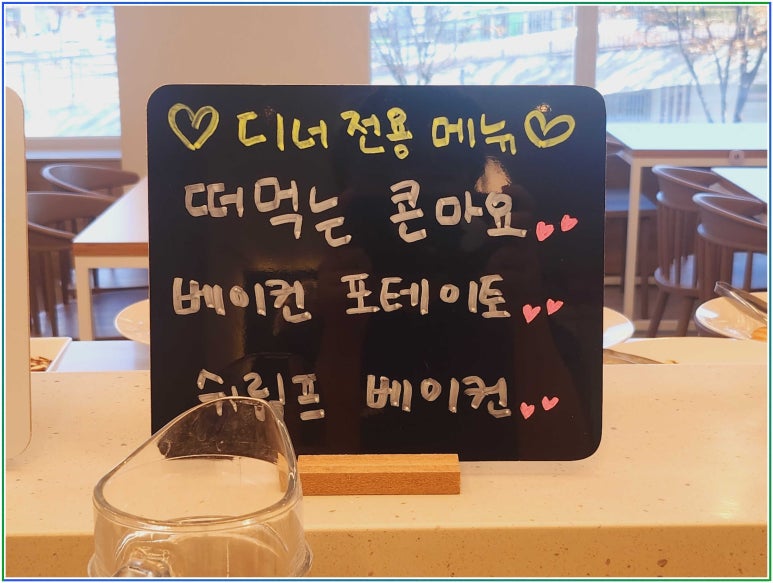 ♡ 디너 전용 메뉴 ♡
떠먹는 콘마요
베이컨 포테이토
쉬림프 베이컨